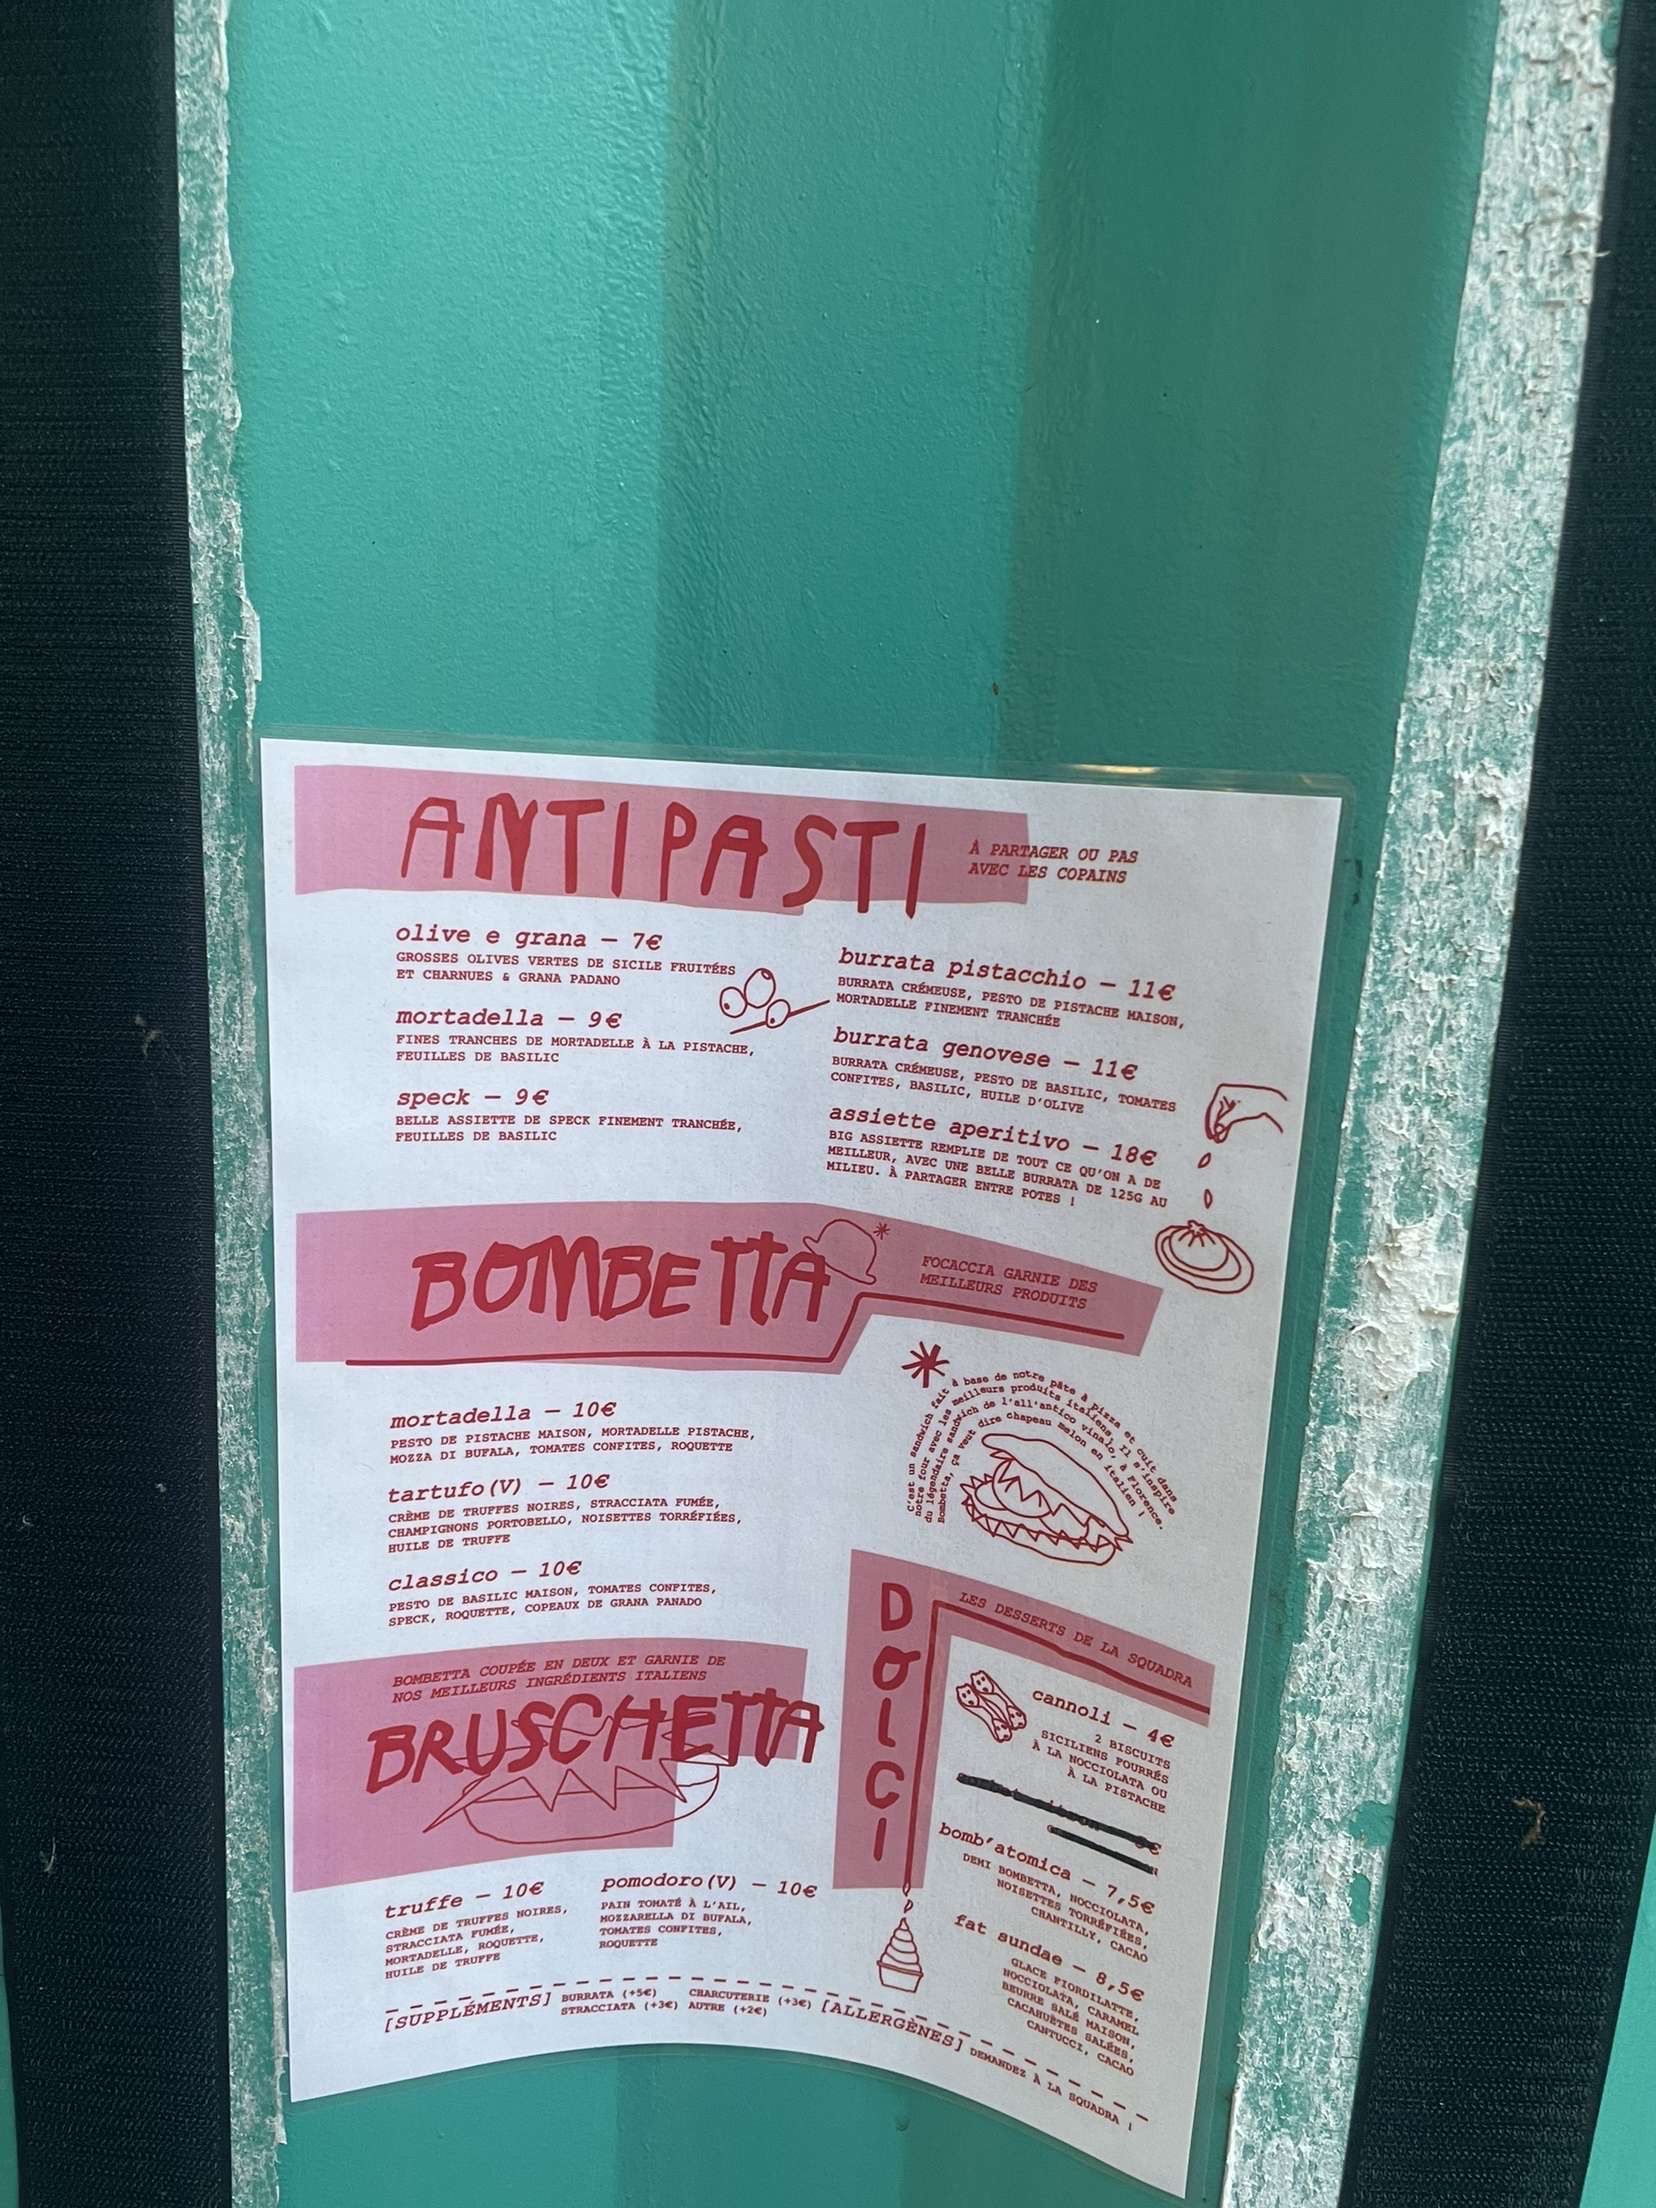 ANTIPASTI
À PARTAGER OU PAS
AVEC LES COPAINS
olive e grana — 7€
GROSSES OLIVES VERTES DE SICILE FRUITÉES
ET CHARNUES & GRANA PADANO
mortadella — 9€
FINES TRANCHES DE MORTADELLE À LA PISTACHE,
FEUILLES DE BASILIC
speck — 9€
BELLE ASSIETTE DE SPECK FINEMENT TRANCHÉE,
FEUILLES DE BASILIC
burrata pistacchio — 11€
BURRATA CRÉMEUSE, PESTO DE PISTACHE MAISON,
MORTADELLE FINEMENT TRANCHÉE
burrata genovese — 11€
BURRATA CRÉMEUSE, PESTO DE BASILIC, TOMATES
CONFITES, BASILIC, HUILE D'OLIVE
assiette aperitivo — 18€
BIG ASSIETTE REMPLIE DE TOUT CE QU'ON A DE
MEILLEUR, AVEC UNE BELLE BURRATA DE 125G AU
MILIEU. À PARTAGER ENTRE POTES !
BOMBETTA*
FOCACCIA GARNIE DES
MEILLEURS PRODUITS
mortadella — 10€
PESTO DE PISTACHE MAISON, MORTADELLE PISTACHE,
MOZZA DI BUFALA, TOMATES CONFITES, ROQUETTE
tartufo(V) — 10€
CRÈME DE TRUFFES NOIRES, STRACCIATA FUMÉE,
CHAMPIGNONS PORTOBELLO, NOISETTES TORRÉFIÉES,
HUILE DE TRUFFE
classico — 10€
PESTO DE BASILIC MAISON, TOMATES CONFITES,
SPECK, ROQUETTE, COPEAUX DE GRANA PANADO
*
C'est un sandwich fait à base de notre pâte à pizza et cuit dans
notre four avec les meilleurs produits italiens. Il s'inspire
du légendaire sandwich de l'all'antico vinaio, à Florence.
Bombetta, ça veut dire chapeau melon en italien !
BOMBETTA COUPÉE EN DEUX ET GARNIE DE
NOS MEILLEURS INGRÉDIENTS ITALIENS
BRUSCHETTA
truffe — 10€
CRÈME DE TRUFFES NOIRES,
STRACCIATA FUMÉE,
MORTADELLE, ROQUETTE,
HUILE DE TRUFFE
pomodoro(V) — 10€
PAIN TOMATÉ À L'AIL,
MOZZARELLA DI BUFALA,
TOMATES CONFITES,
ROQUETTE
DOLCI
LES DESSERTS DE LA SQUADRA
cannoli — 4€
2 BISCUITS
SICILIENS FOURRÉS
À LA NOCCIOLATA OU
À LA PISTACHE
bomb'atomica — 7,5€
DEMI BOMBETTA, NOCCIOLATA,
NOISETTES TORRÉFIÉES,
CHANTILLY, CACAO
fat sundae — 8,5€
GLACE FIORDILATTE,
NOCCIOLATA, CARAMEL
BEURRE SALÉ MAISON,
CACAHUÈTES SALÉES,
CANTUCCI, CACAO
[SUPPLÉMENTS] BURRATA (+5€) CHARCUTERIE (+3€)
STRACCIATA (+3€) AUTRE (+2€)
[ALLERGÈNES] DEMANDEZ À LA SQUADRA !